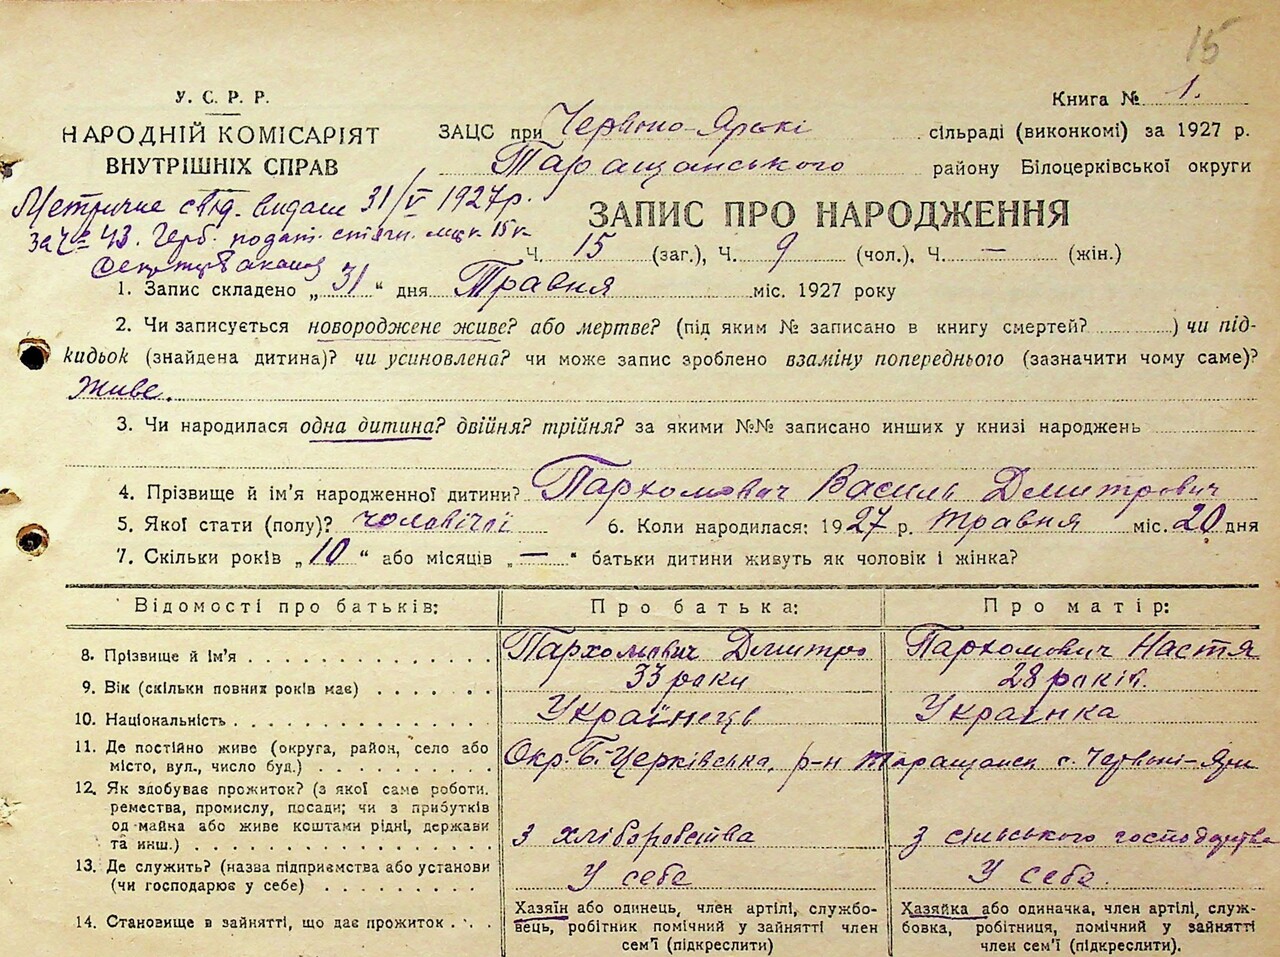 15
У. С. Р. Р.
НАРОДНІЙ КОМІСАРІЯТ
ВНУТРІШНІХ СПРАВ
Книга № 1.
ЗАЦС при Червоно-Ярські сільраді (виконкомі) за 1927 р.
Таращанського району Білоцерківської округи
Метричне свід. видане 31/V 1927 р.
за № 43. Герб. подат. 15 к.
ЗАПИС ПРО НАРОДЖЕННЯ
Ч. 15 (заг.), Ч. 9 (чол.), Ч. — (жін.)
1. Запис складено „31“ дня Травня міс. 1927 року
2. Чи записується новороджене живе? або мертве? (під яким № записано в книгу смертей? ) чи під-
кидьок (знайдена дитина)? чи усиновлена? чи може запис зроблено взаміну попереднього (зазначити чому саме)?
Живе.
3. Чи народилася одна дитина? двійня? трійня? за якими №№ записано инших у книзі народжень
4. Прізвище й ім'я народженної дитини? Пархомович Василь Дмитрович
5. Якої стати (полу)? чоловічої 6. Коли народилася: 1927 р. травня міс. 20 дня
7. Скільки років „10“ або місяців „—“ батьки дитини живуть як чоловік і жінка?
Відомості про батьків: Про батька: Про матір:
8. Прізвище й ім'я Пархомович Дмитро Пархомович Настя
9. Вік (скільки повних років має) 33 роки 28 років.
10. Національність Українець Українка
11. Де постійно живе (округа, район, село або
місто, вул., число буд.) Окр. Б-Церківська, р-н Таращанск с. Червоні-Яри
12. Як здобуває прожиток? (з якої саме роботи.
ремества, промислу, посади; чи з прибутків
од майна або живе коштами рідні, держави
та инш.) з хліборобства з сільського господарства
13. Де служить? (назва підприємства або установи
(чи господарює у себе) У себе У себе.
14. Становище в зайнятті, що дає прожиток
Хазяїн або одинець, член артілі, службо-
вець, робітник помічний у зайнятті член
сем'ї (підкреслити)
Хазяйка або одиначка, член артілі, служ-
бовка, робітниця, помічний у зайнятті
член сем'ї (підкреслити).